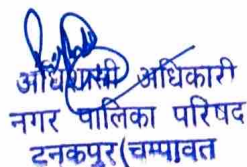 अधिशासी अधिकारी
नगर पालिका परिषद
टनकपुर (चम्पावत